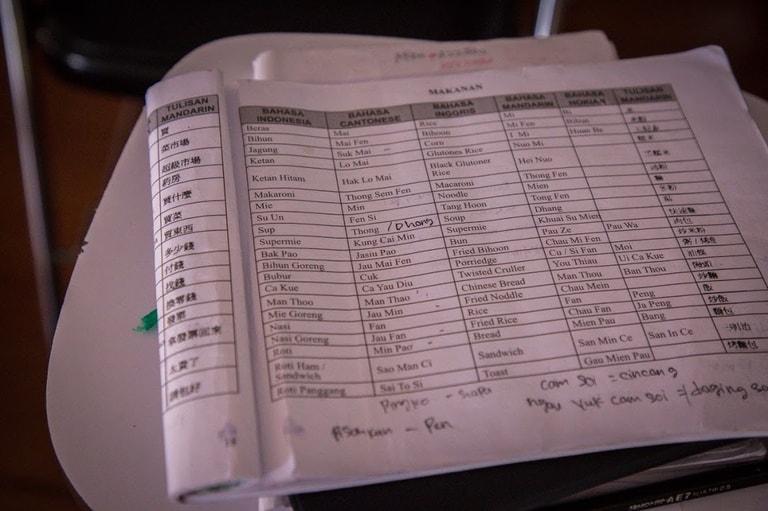 TULISAN MANDARIN
買
菜市場
超級市場
藥房
買什麼
買菜
買東西
多少錢
付錢
找錢
換零錢
發票
拿發票回來
太貴了
請包好
MAKANAN
BAHASA INDONESIA BAHASA CANTONESE BAHASA INGGRIS BAHASA MANDARIN BAHASA HOKIAN TULISAN MANDARIN
Beras Mai Rice Mi Bi 米
Bihun Mai Fen Bihoon Mi Fen Bihun 米粉
Jagung Suk Mai Corn I Mi Huan Be
Ketan Lo Mai Glutones Rice Nuo Mi 糯米
Ketan Hitam Hak Lo Mai Black Glutoner Rice Hei Nuo
Makaroni Thong Sem Fen Macaroni Thong Fen
Mie Min Noodle Mien 麵
Su Un Fen Si Tang Hoon Tong Fen
Sup Thong / Dhang Soup Dhang
Supermie Kung Cai Min Supermie Khuai Su Mien
Bak Pao Jasiu Pao Bun Pau Ze Pau Wa
Bihun Goreng Jau Mai Fen Fried Bihoon Chau Mi Fen 炒米粉
Bubur Cuk Porriedge Cu / Si Fan Moi
Ca Kue Ca Yau Diu Twisted Cruller You Thiau Ui Ca Kue
Man Thoo Man Thao Chinese Bread Man Thou Ban Thou
Mie Goreng Jau Min Fried Noddle Chau Mein 炒麵
Nasi Fan Rice Fan Peng 飯
Nasi Goreng Jau Fan Fried Rice Chau Fan Ju Peng 炒飯
Roti Min Pao Bread Mien Pau Bang 麵包
Roti Ham / Sandwich Sao Man Ci Sandwich San Min Ce San In Ce
Roti Panggang Sai To Si Toast Gau Mien Pau 烤麵包
cam soi = cincang
ngau yuk cam soi =
Pen